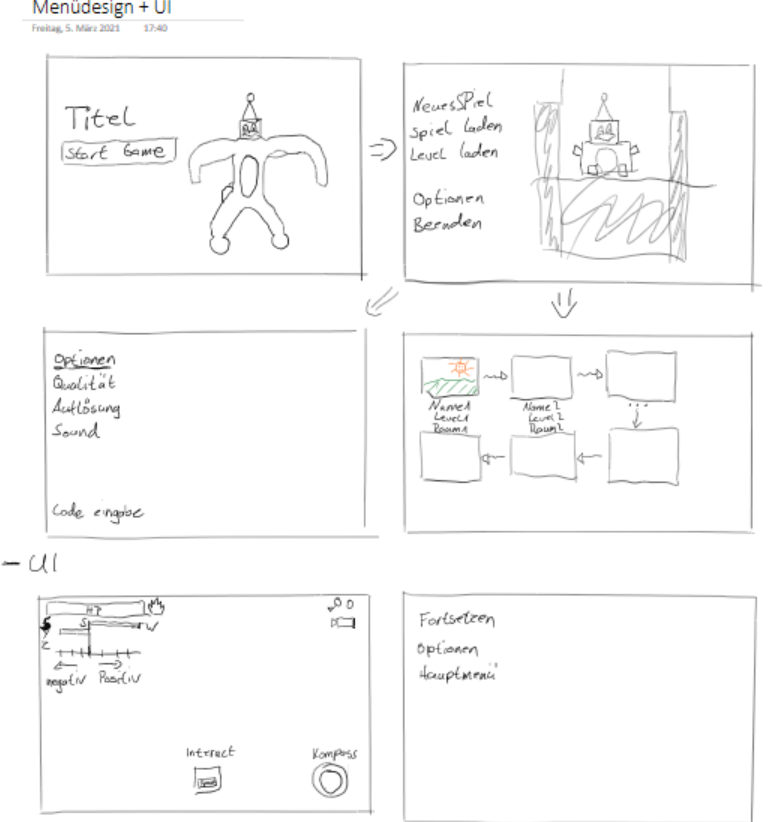 Menüdesign + UI
Freitag, 5. März 2021 17:40
Titel
Start Game
Neues Spiel
Spiel laden
Level laden
Optionen
Beenden
Optionen
Qualität
Auflösung
Sound
Code eingabe
Name1
Level1
Raum1
Name2
Level2
Raum2
...
- UI
HP
S
W
negativ Positiv
Interact
Kompass
Fortsetzen
Optionen
Hauptmenü